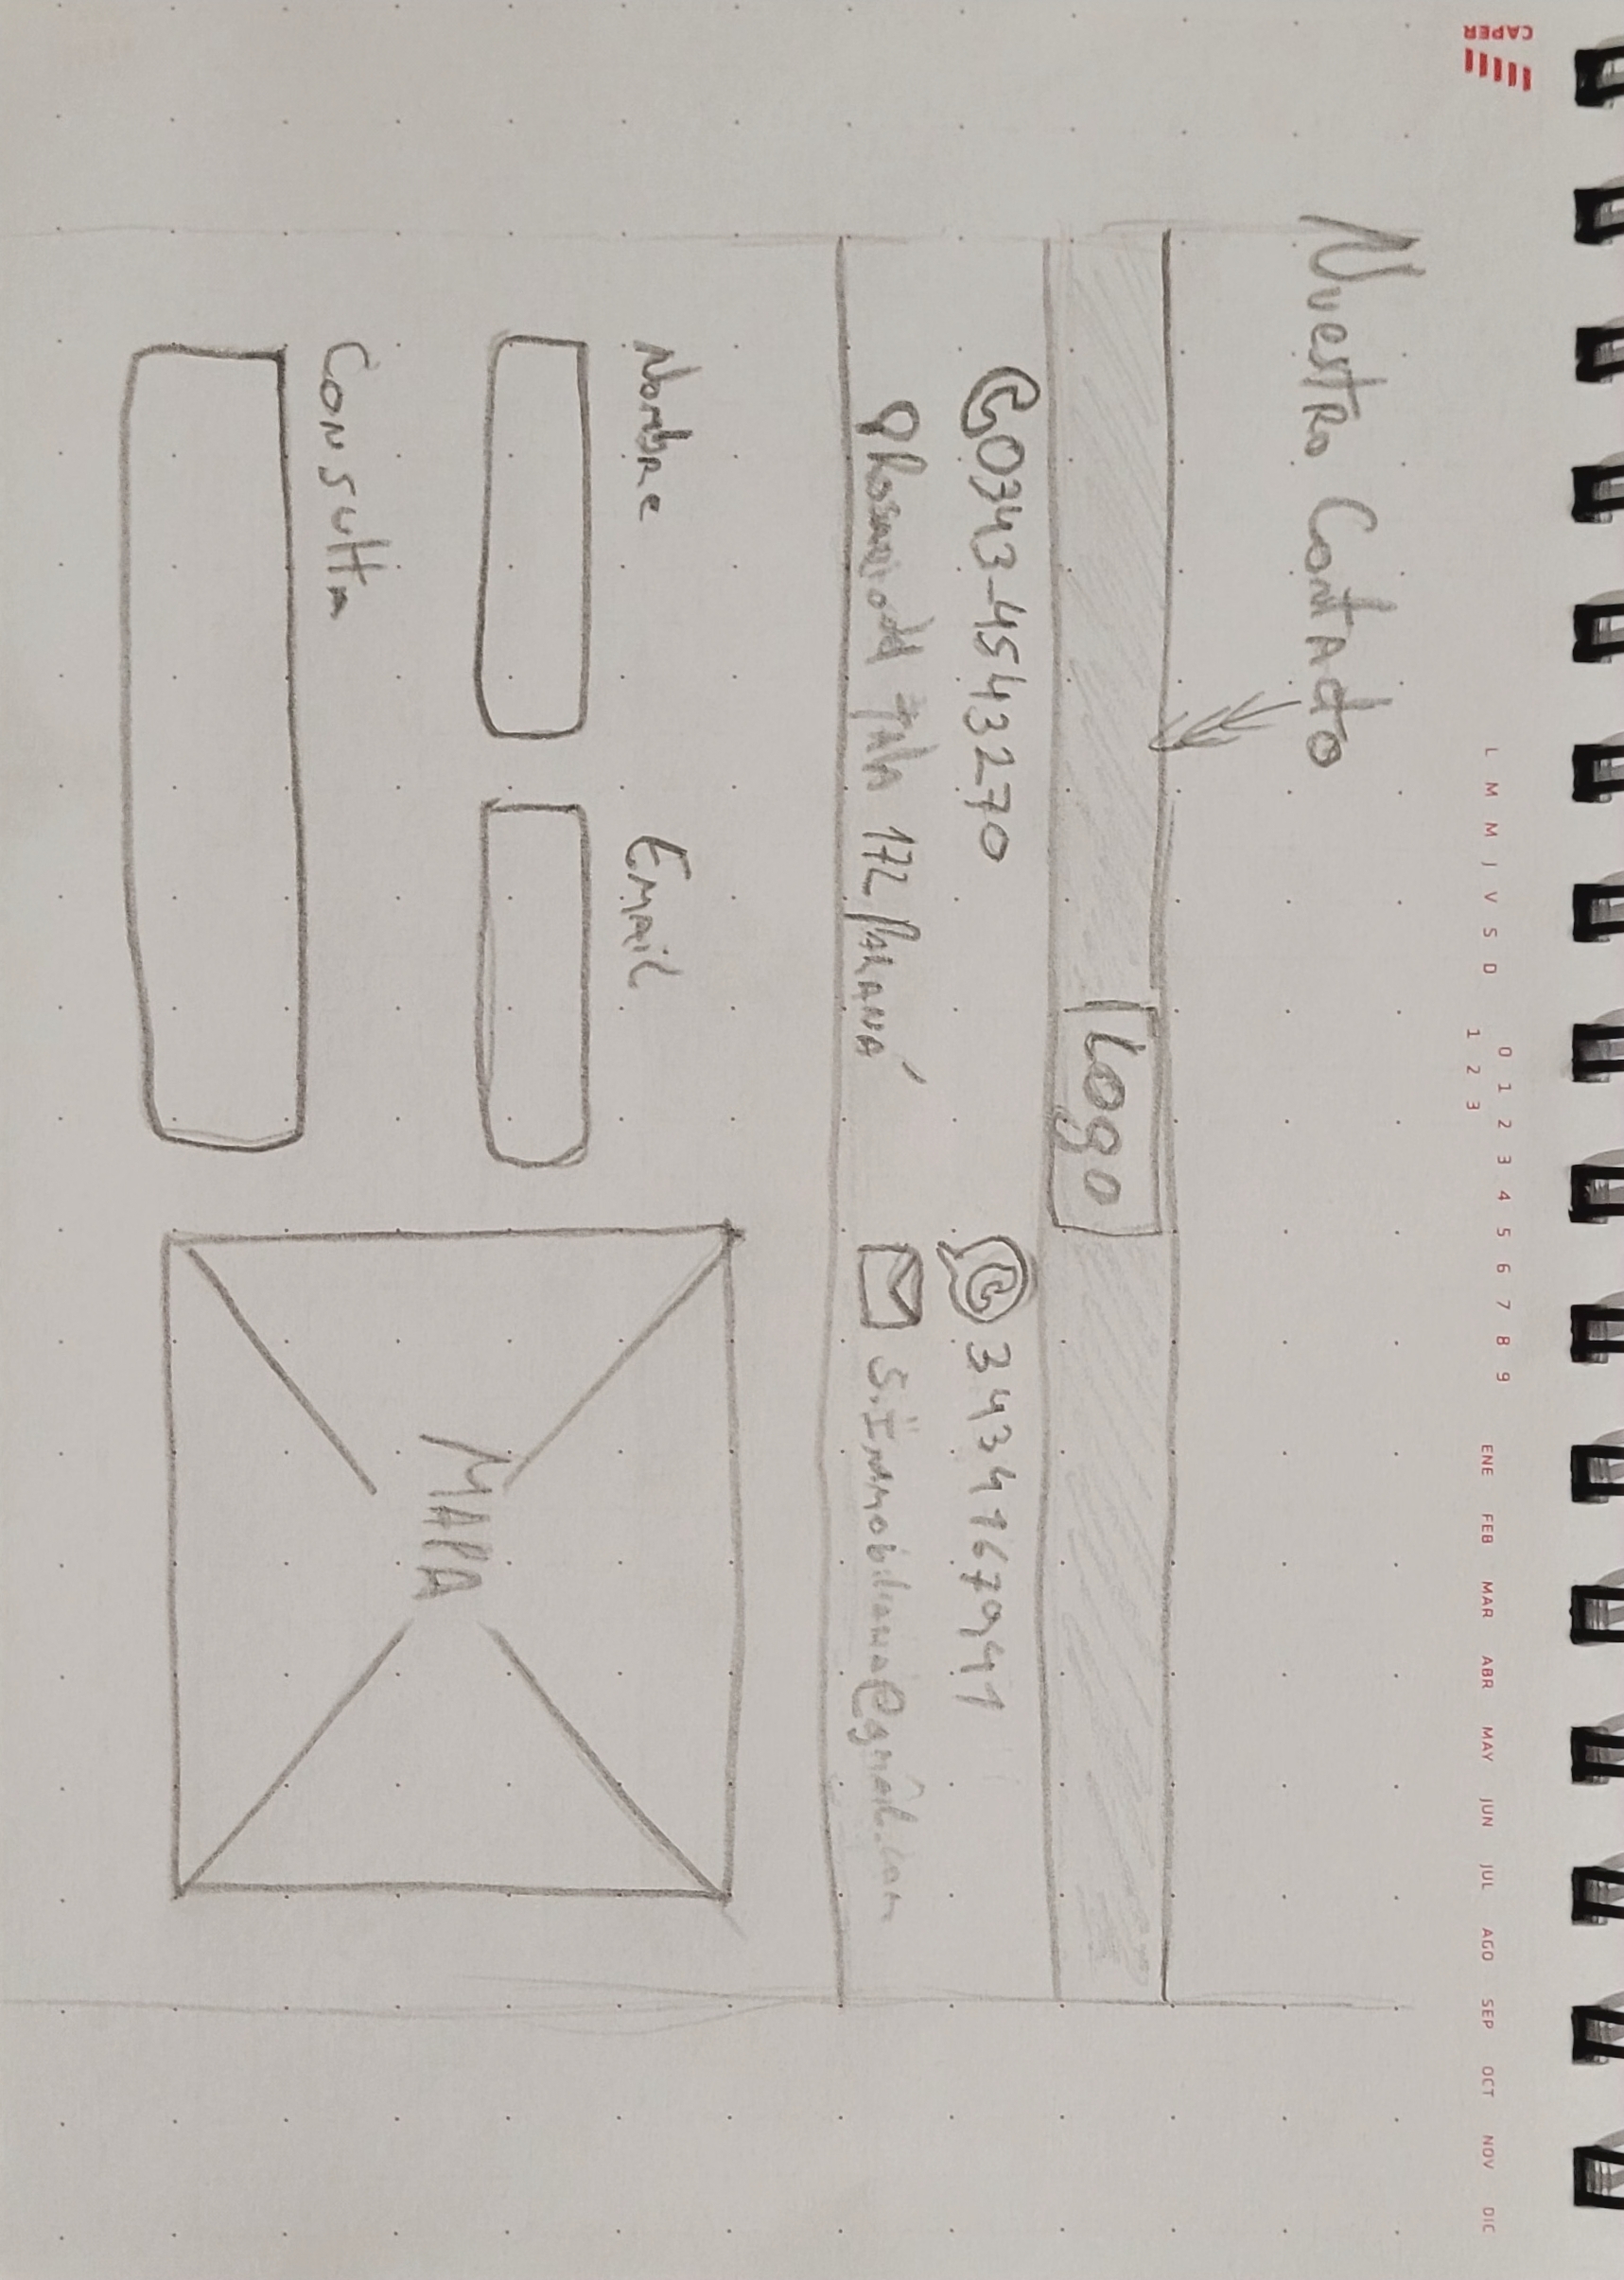 CAPER
L M M J V S D
0 1 2 3 4 5 6 7 8 9
1 2 3
ENE FEB MAR ABR MAY JUN JUL AGO SEP OCT NOV DIC
Nuestro Contacto
Logo
0343-4543270
3434167941
Rosario del Tala 172 Paraná
S.Inmobiliaria@gmail.com
Nombre
Email
Consulta
MAPA